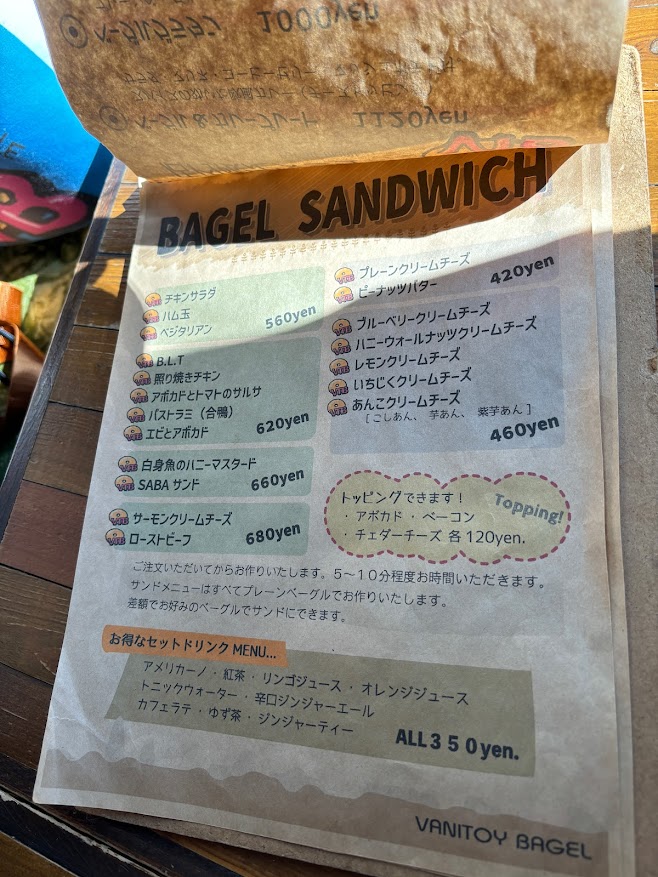 ベーグルグラタン 1000yen
ベーグル&カレープレート 1120yen
BAGEL SANDWICH
チキンサラダ
ハム玉
ベジタリアン
560yen
B.L.T
照り焼きチキン
アボカドとトマトのサルサ
パストラミ(合鴨)
エビとアボカド
620yen
白身魚のハニーマスタード
SABAサンド
660yen
サーモンクリームチーズ
ローストビーフ
680yen
プレーンクリームチーズ
ピーナッツバター
420yen
ブルーベリークリームチーズ
ハニーウォールナッツクリームチーズ
レモンクリームチーズ
いちじくクリームチーズ
あんこクリームチーズ
[こしあん、 芋あん、 紫芋あん]
460yen
トッピングできます!
Topping!
・アボカド ・ベーコン
・チェダーチーズ 各120yen.
ご注文いただいてからお作りいたします。5〜10分程度お時間いただきます。
サンドメニューはすべてプレーンベーグルでお作りいたします。
差額でお好みのベーグルでサンドにできます。
お得なセットドリンク MENU...
アメリカーノ・紅茶・リンゴジュース・オレンジジュース
トニックウォーター・辛口ジンジャーエール
カフェラテ・ゆず茶・ジンジャーティー
ALL350yen.
VANITOY BAGEL